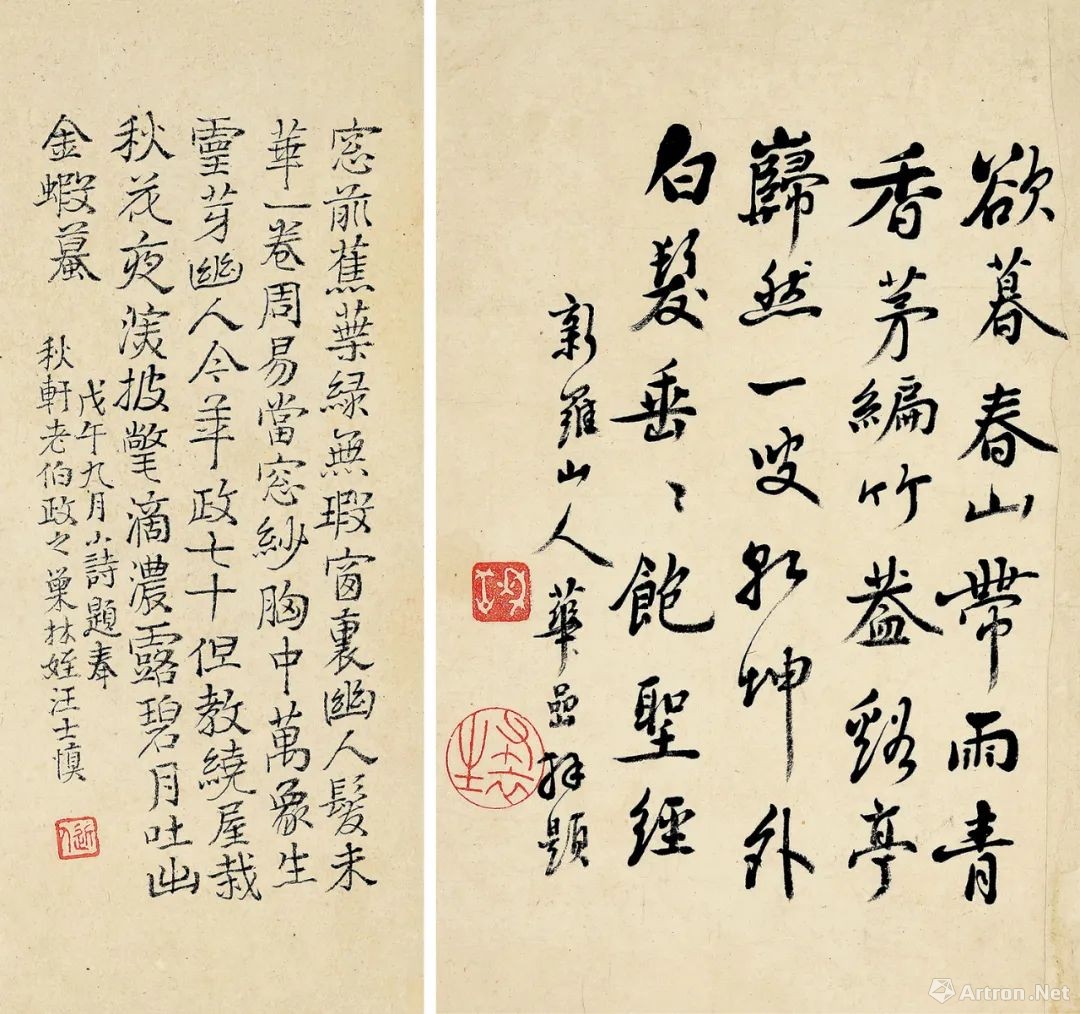 欲暮春山帶雨青
香茅編竹蓋谿亭
巋然一叟乾坤外
白髮垂〻飽聖經
新羅山人華喦拜題
窓前蕉葉綠無瑕窗裏幽人髮未
華一卷周易當窓紗胸中萬象生
靈芽幽人今年政七十但教繞屋栽
秋花夜深披氅滴濃露碧月吐出
金蝦蟇
戊午九月小詩題奉
秋軒老伯政之巢林姪汪士慎
Artron.Net